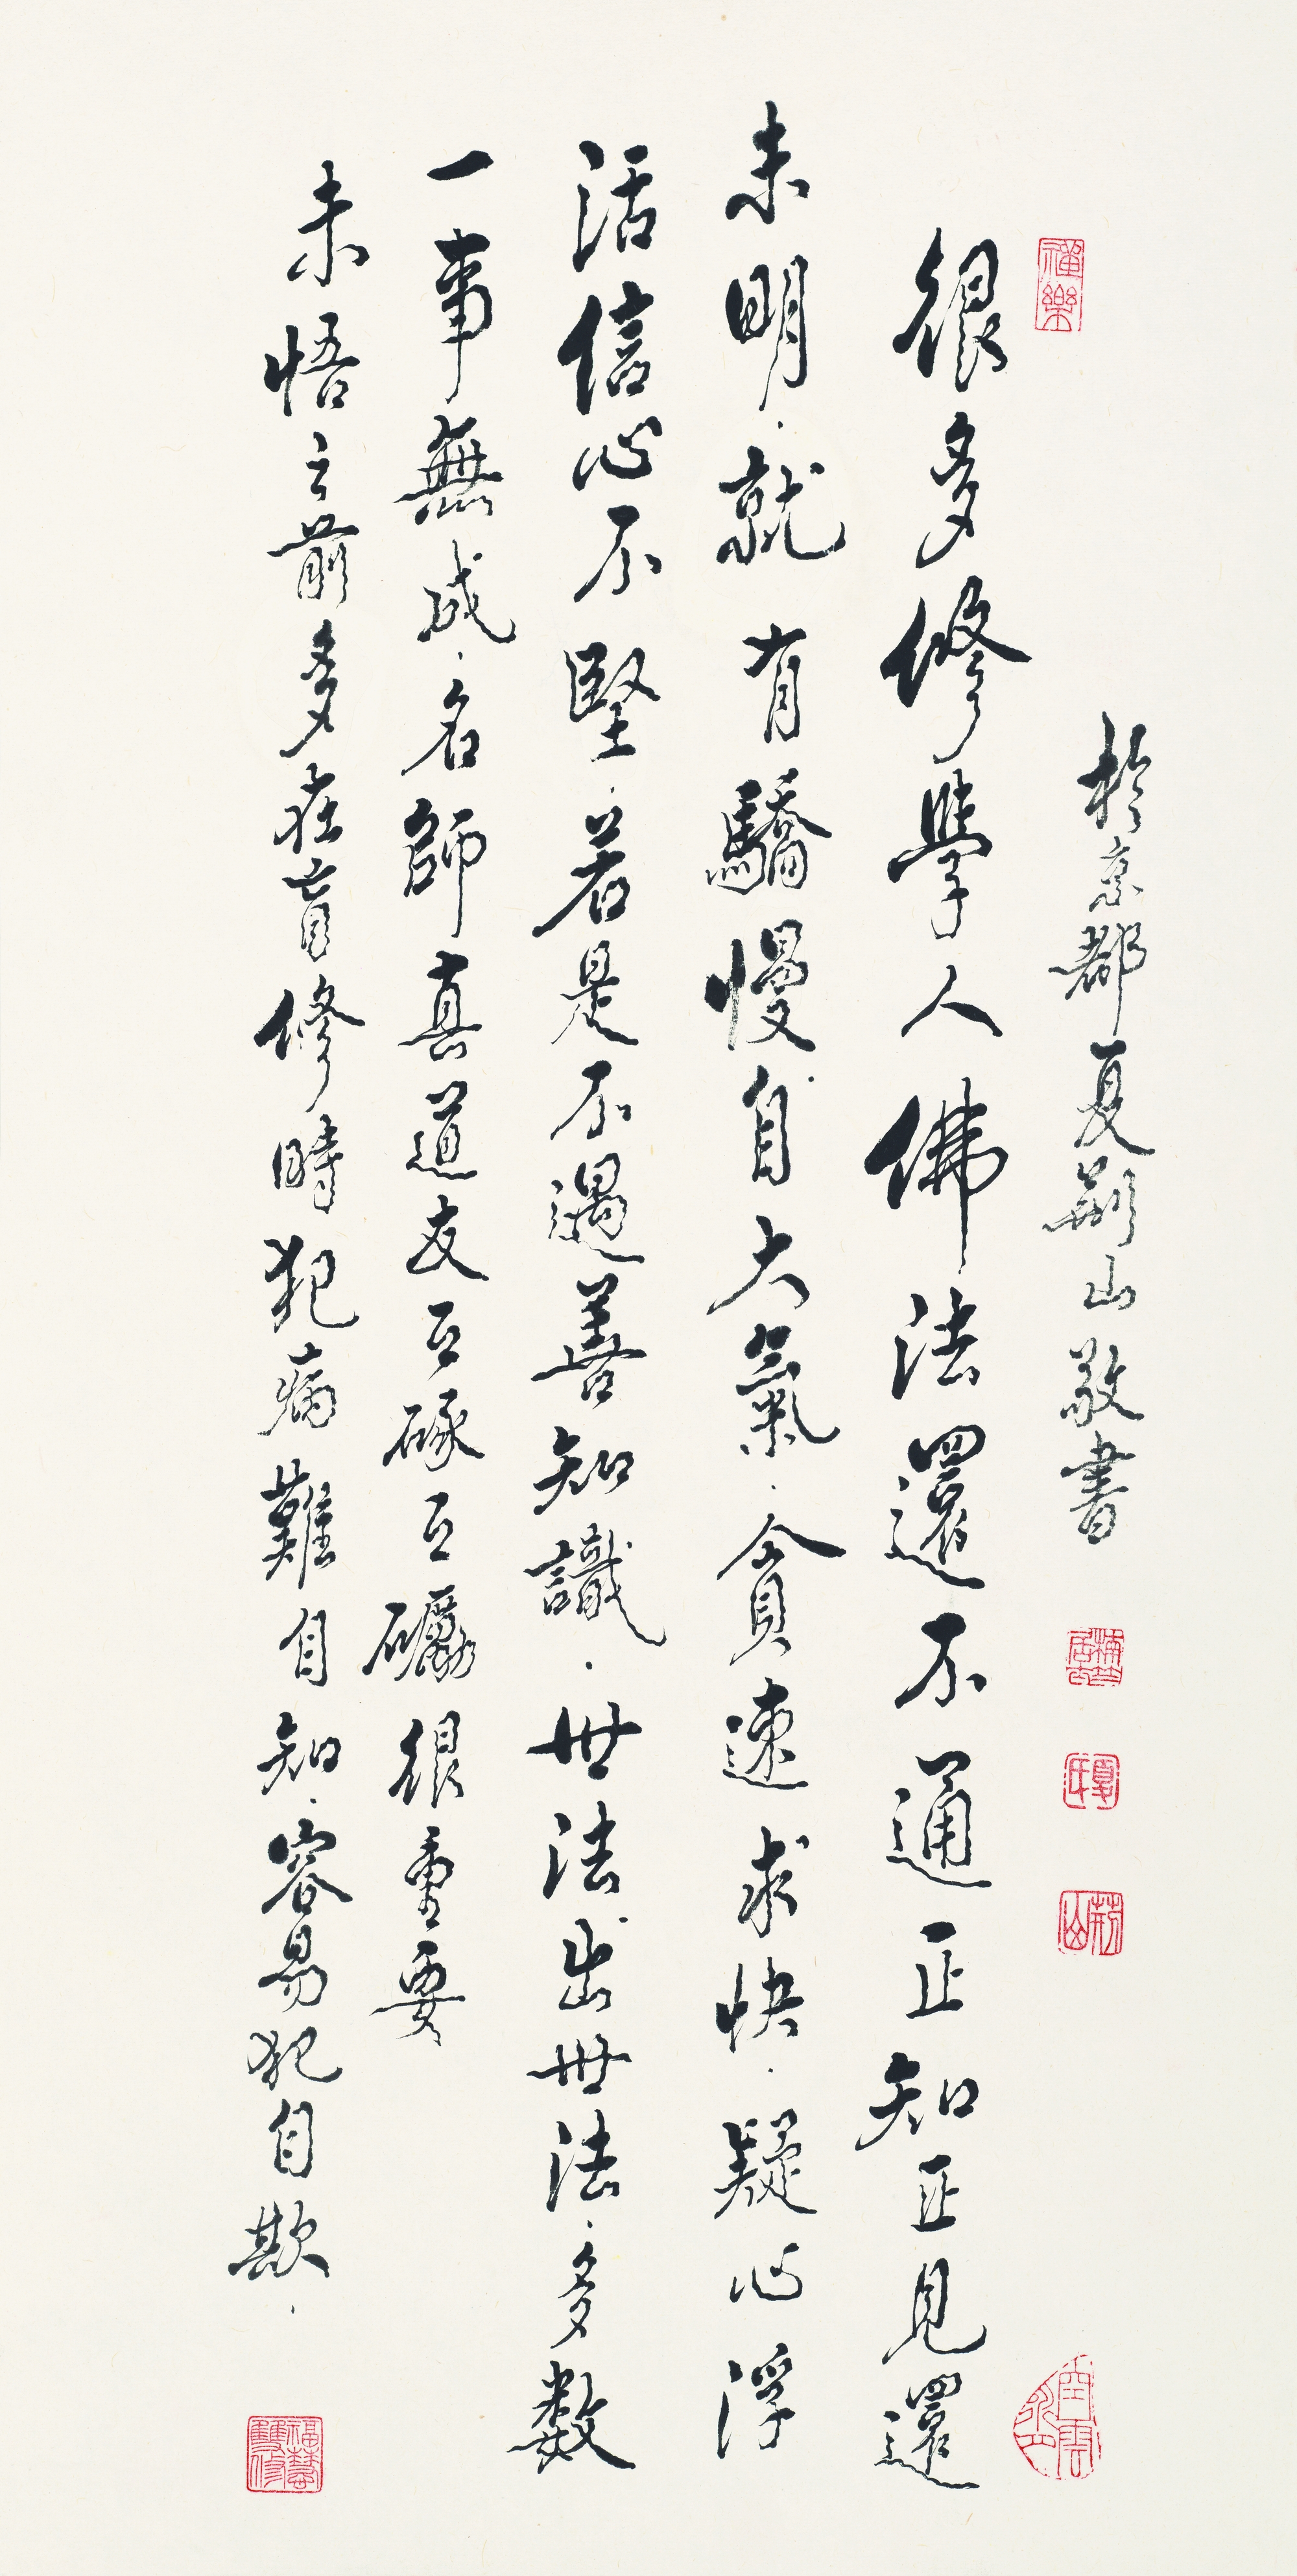 禪樂
於京都夏荊山敬書
夏氏
荊山
很多修學人佛法還不通正知正見還
未明.就有驕慢自大氣.貪速求快.疑心浮
活信心不堅.若是不遇善知識.世法出世法.多數
一事無成.名師真道友互硺互礪很重要
未悟之前多在盲修時犯病難自知.容易犯自欺.
福慧雙修